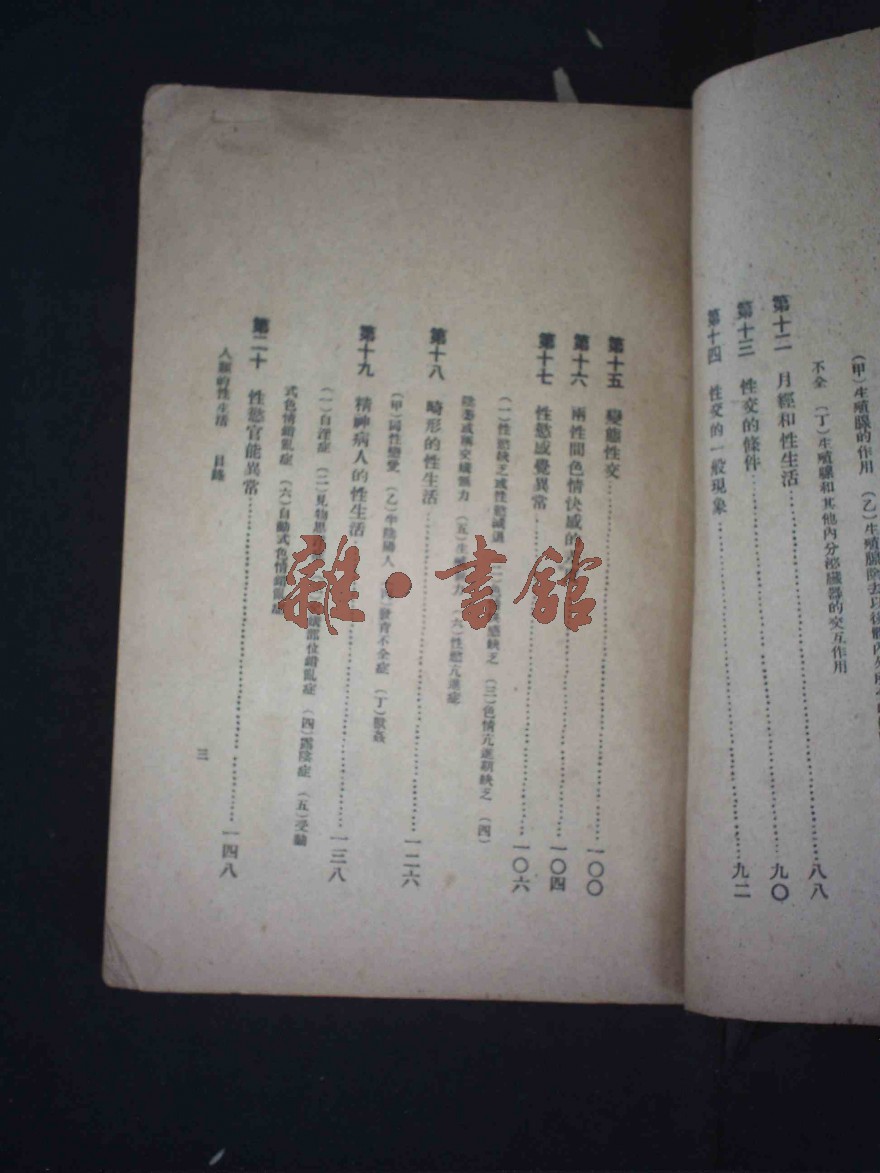 (甲)生殖腺的作用 (乙)生殖腺除去以後體內外
不全 (丁)生殖腺和其他內分泌臟器的交互作用
第十二 月經和性生活……八八
第十三 性交的條件……九〇
第十四 性交的一般現象……九二
第十五 變態性交……一〇〇
第十六 兩性間色情快感的……一〇四
第十七 性慾感覺異常……一〇六
(一)性慾缺乏或性慾減退 感缺乏 (三)色情亢進期缺乏 (四)
陰萎或稱交媾無力 (五)生殖 力 (六)性慾亢進症
第十八 畸形的性生活……一二六
(甲)同性戀愛 (乙)半陰陽人 發育不全症 (丁)獸姦
第十九 精神病人的性生活……一三八
(一)自淫症 (二)見物思 部位錯亂症 (四)露陰症 (五)受動
式色情錯亂症 (六)自動式色情錯亂症
第二十 性慾官能異常……一四八
人類的性生活 目錄
三
雜·書館